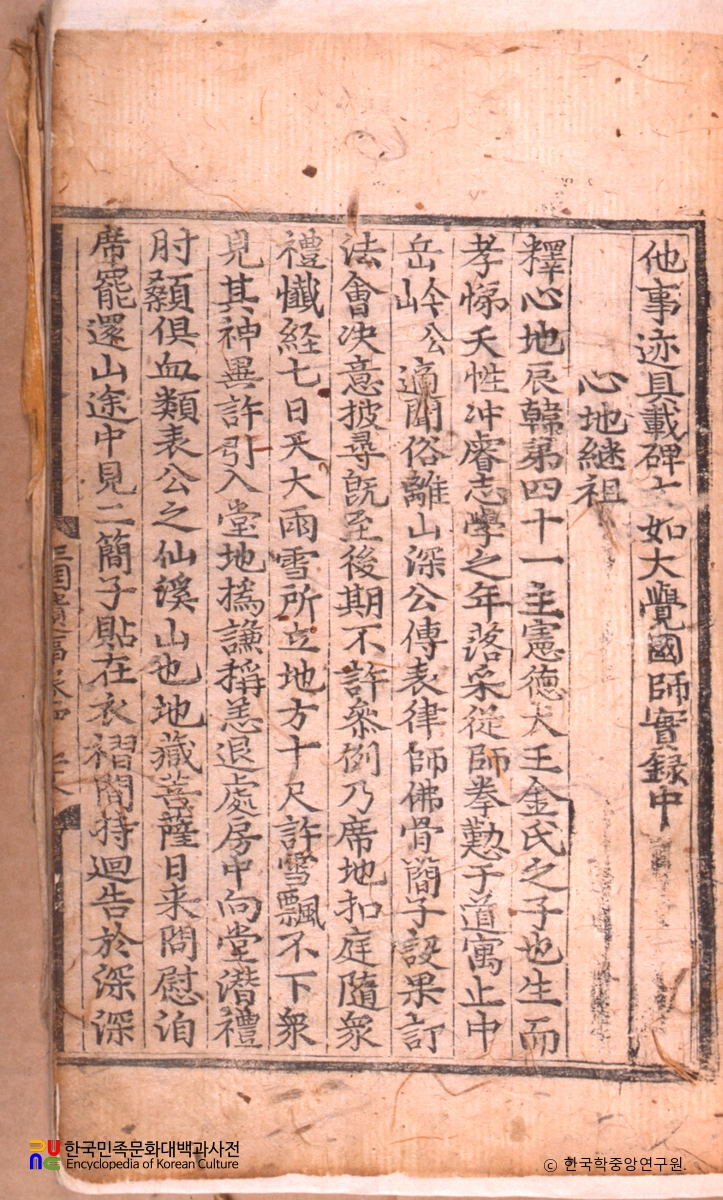 他事迹具載碑上如大覺國師實録中
心地継祖
釋心地辰韓第四十一主憲德大王金氏之子也生而
孝悌天性冲睿志學之年落采從師拳懃于道寓止中
岳岺公適聞俗離山深公傳表律師佛骨簡子設果訂
法會决意披尋旣至後期不許叅例乃席地扣庭隨衆
禮懺経七日天大雨雪所立地方十尺許雪飄不下衆
見其神異許引入堂地撝謙稱恙退處房中向堂潜禮
肘顙俱血類表公之仙溪山也地藏菩薩日来問慰洎
席罷還山途中見二簡子貼在衣褶間持迴告於深深
한국민족문화대백과사전
Encyclopedia of Korean Culture
© 한국학중앙연구원.